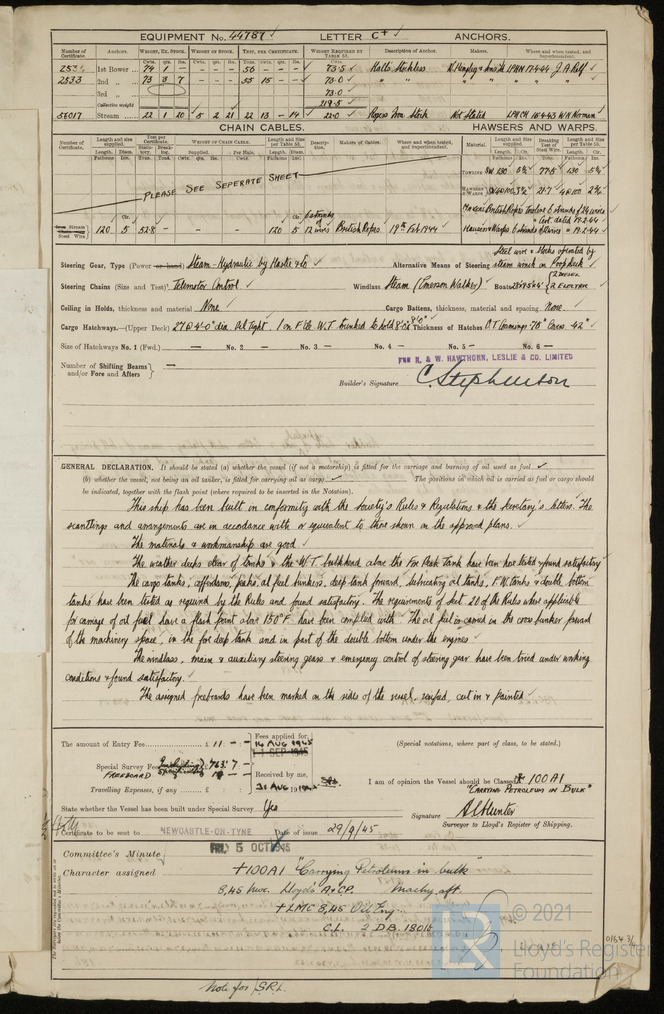 EQUIPMENT No. 44787 LETTER C+ ANCHORS.
Number of Certificate. Anchors. WEIGHT, EX. STOCK. WEIGHT OF STOCK. TEST, PER CERTIFICATE. WEIGHT REQUIRED BY TABLE 53. Description of Anchor. Makers. Where and when tested, and Superintendent.
1st Bower 74 1 - - - - 56 - - - 73·5 Halls Stockless
2533 2nd „ 73 3 7 - - - 55 15 - - 73·0 „ „
3rd „ 73·0
Collective weight 219·5
55017 Stream 22 1 20 5 2 21 22 13 - 14 22·0 Rogers Iron Stock Not Stated LPHCH 16.4.43 W.H. Norman
CHAIN CABLES. HAWSERS AND WARPS.
PLEASE SEE SEPERATE SHEET
Stream Steel Wire 120 5 52·8 - 120 5 6 strands of 12 wires British Ropes 19th Feb 1944
Steering Gear, Type (Power or hand) Steam-Hydraulic by Hastie & Co Alternative Means of Steering Steel wire & Blocks operated by steam winch on Poop Deck
Steering Chains (Size and Test) Telemotor Control Windlass Steam (Emerson Walker) Boats
Ceiling in Holds, thickness and material None Cargo Battens, thickness, material and spacing None.
Cargo Hatchways.—(Upper Deck) 27 @ 4'-0" dia. Oil Tight, 1 on F'Cle. W.T. trunked to hold Thickness of Hatches O.T. Coamings ·78" Covers ·42"
Size of Hatchways No. 1 (Fwd.) — No. 2 — No. 3 — No. 4 — No. 5 — No. 6 —
Number of Shifting Beams and/or Fore and Afters } —
FOR R. & W. HAWTHORN, LESLIE & CO. LIMITED
Builder's Signature C. Stephenson
GENERAL DECLARATION. It should be stated (a) whether the vessel (if not a motorship) is fitted for the carriage and burning of oil used as fuel
(b) whether the vessel, not being an oil tanker, is fitted for carrying oil as cargo) The positions in which oil is carried as fuel or cargo should
be indicated, together with the flash point (where required to be inserted in the Notation).
This ship has been built in conformity with the Society's Rules & Regulations & the Secretary's letters. The
scantlings and arrangements are in accordance with or equivalent to those shown on the approved plans.
The materials & workmanship are good
The weather decks clear of tanks & the W.T. bulkhead above the Fore Peak Tank have been hose tested & found satisfactory
The cargo tanks, cofferdams, peaks, oil fuel bunkers, deep tank forward, lubricating oil tanks, F.W. tanks & double bottom
tanks have been tested as required by the Rules and found satisfactory. The requirements of Sect. 20 of the Rules where applicable
for carriage of oil fuel have a flash point above 150°F have been complied with. The oil fuel is carried in the cross bunker forward
of the machinery space, in the for'd deep tank and in part of the double bottom under the engines
The windlass, main & auxiliary steering gears & emergency control of steering gear have been tried under working
conditions & found satisfactory.
The assigned freeboards have been marked on the sides of the vessel, verified, cut in & painted
The amount of Entry Fee £ 11 : - : - Fees applied for, 14 AUG 1945 (Special notations, where part of class, to be stated.)
Special Survey Fee £ 763 : 7 : -
FREEBOARD Received by me, I am of opinion the Vessel should be Classed 100A1
Travelling Expenses, if any £ : : 31 AUG 1945 "CARRYING PETROLEUM IN BULK"
State whether the Vessel has been built under Special Survey Yes Signature A. C. Hunter
Surveyor to Lloyd's Register of Shipping.
Certificate to be sent to NEWCASTLE-ON-TYNE Date of issue 29/9/45
Committee's Minute FRI. 5 OCT 1945
Character assigned +100A1 "Carrying Petroleum in bulk"
8,45 Nwc. Lloyd's A & CP. Machy. aft
+LMC 8,45 Oil Eng.
C.L. 2 D.B. 180lb
Note for S.R.L.
© 2021
Lloyd's Register
Foundation